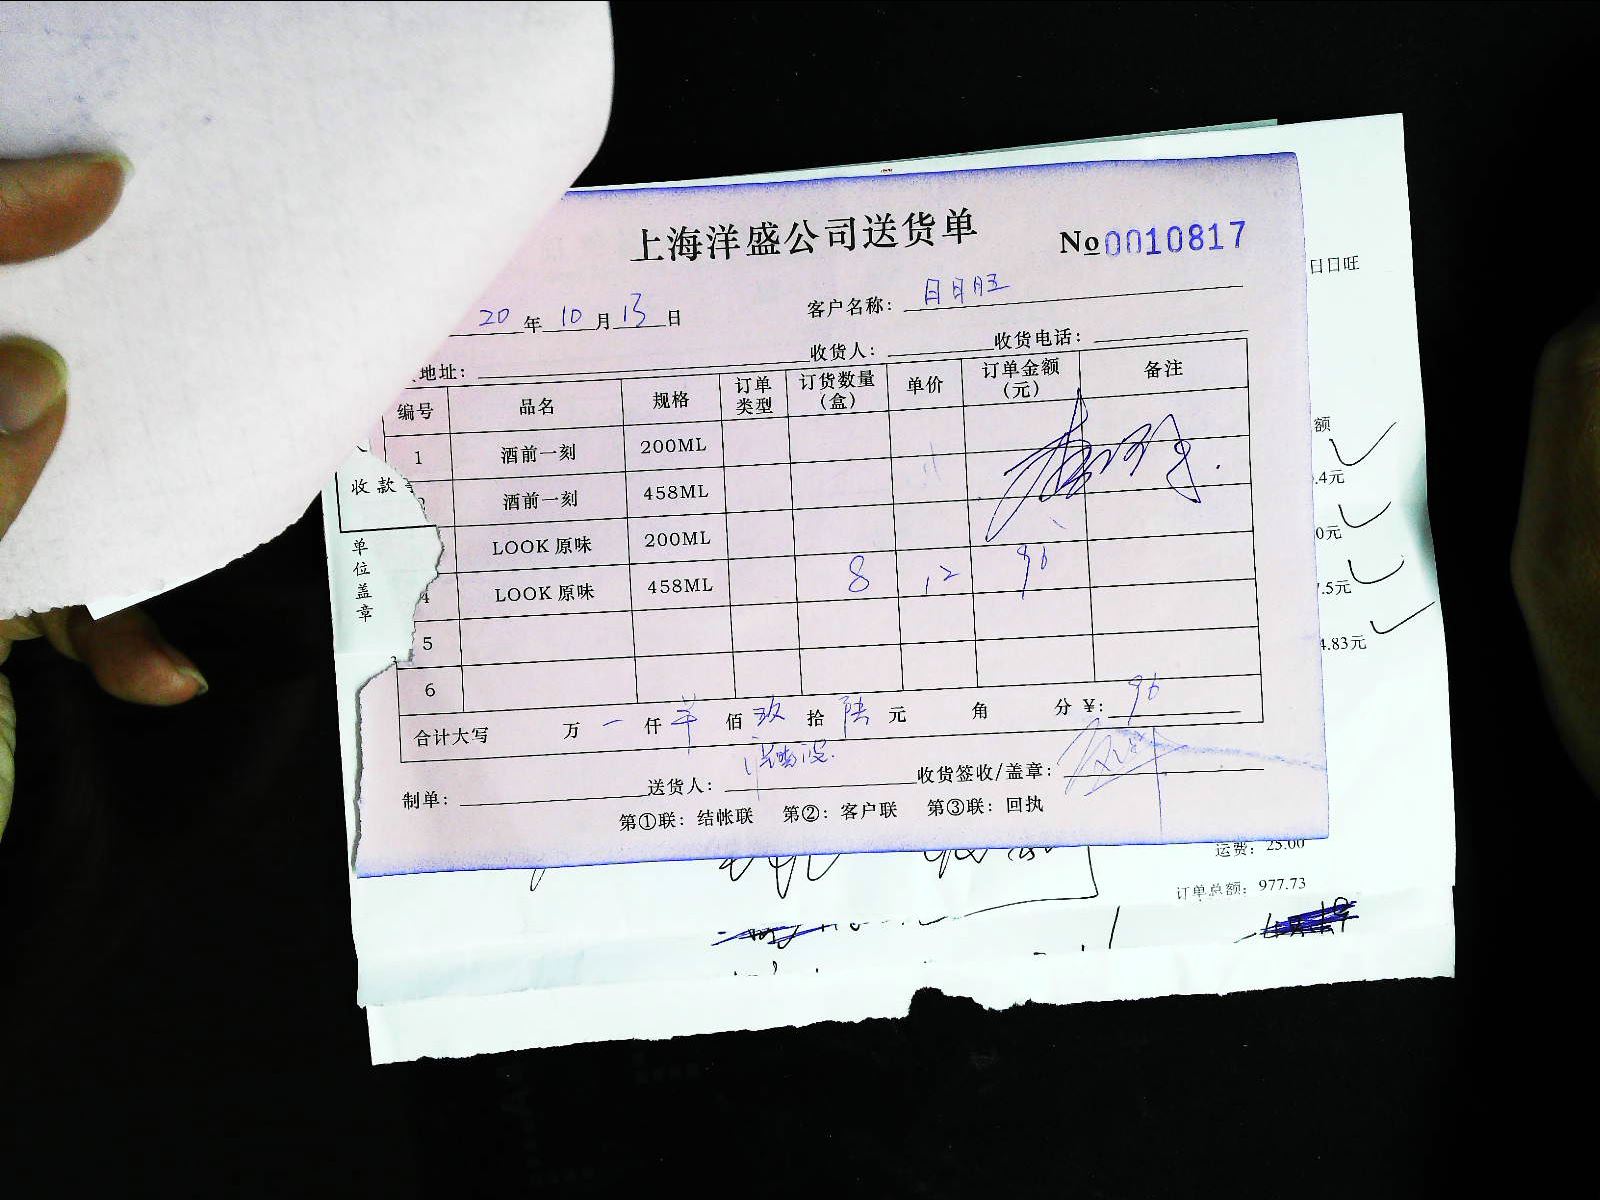 上海洋盛公司送货单 No 0010817
日日旺
20 年 10 月 13 日 客户名称: 日日旺
地址: 收货人: 收货电话:
编号 品名 规格 订单类型 订货数量(盒) 单价 订单金额(元) 备注
额
1 酒前一刻 200ML
收款
.4元
酒前一刻 458ML
0元
LOOK 原味 200ML
单位盖章
4 LOOK 原味 458ML 8 12 96
.5元
5
4.83元
6
合计大写 万 一 仟 羊 佰 玖 拾 陆 元 角 分 ¥: 96
制单: 送货人: 收货签收/盖章:
第①联: 结帐联 第②: 客户联 第③联: 回执
运费: 25.00
订单总额: 977.73